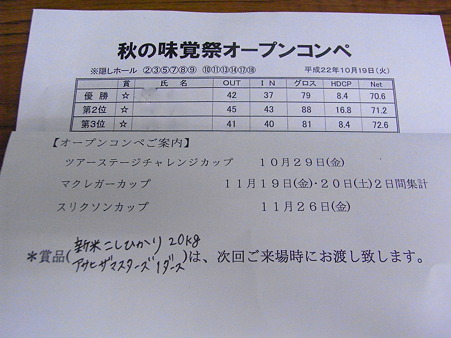 秋の味覚祭オープンコンペ
※隠しホール ②③⑤⑦⑧⑨ ⑩⑪⑬⑭⑰⑱ 平成22年10月19日(火)
賞 氏名 OUT IN グロス HDCP Net
優勝 ☆ 42 37 79 8.4 70.6
第2位 ☆ 45 43 88 16.8 71.2
第3位 ☆ 41 40 81 8.4 72.6
【オープンコンペご案内】
ツアーステージチャレンジカップ 10月29日(金)
マクレガーカップ 11月19日(金)・20日(土)2日間集計
スリクソンカップ 11月26日(金)
新米こしひかり 20kg
*賞品( )は、次回ご来場時にお渡し致します。
アサヒザマスターズ1ダース